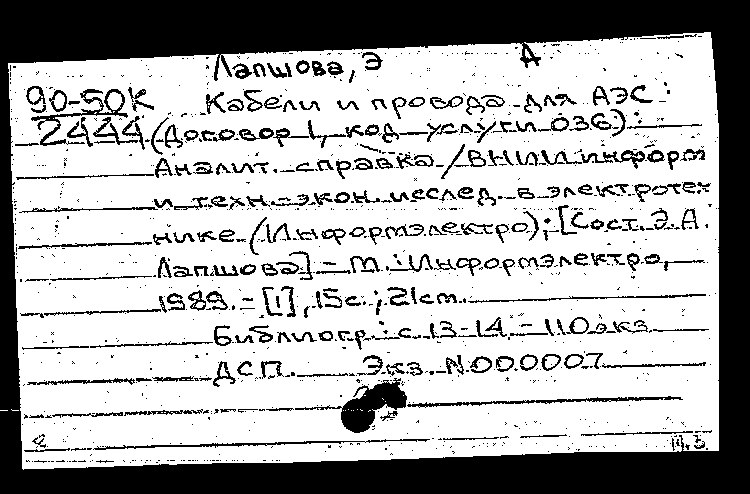 Лапшова, Э А
90-50К Кабели и провода для АЭС :
2444 (Договор 1, код услуги 036) :
Аналит. справка / ВНИИ информ
и техн.-экон. исслед. в электротех
нике (Информэлектро); [Сост. Э.А.
Лапшова] - М. : Информэлектро,
1989. - [1], 15с.; 21см.
Библиогр.: с 13-14. - 110экз
ДСП. Экз. N000007